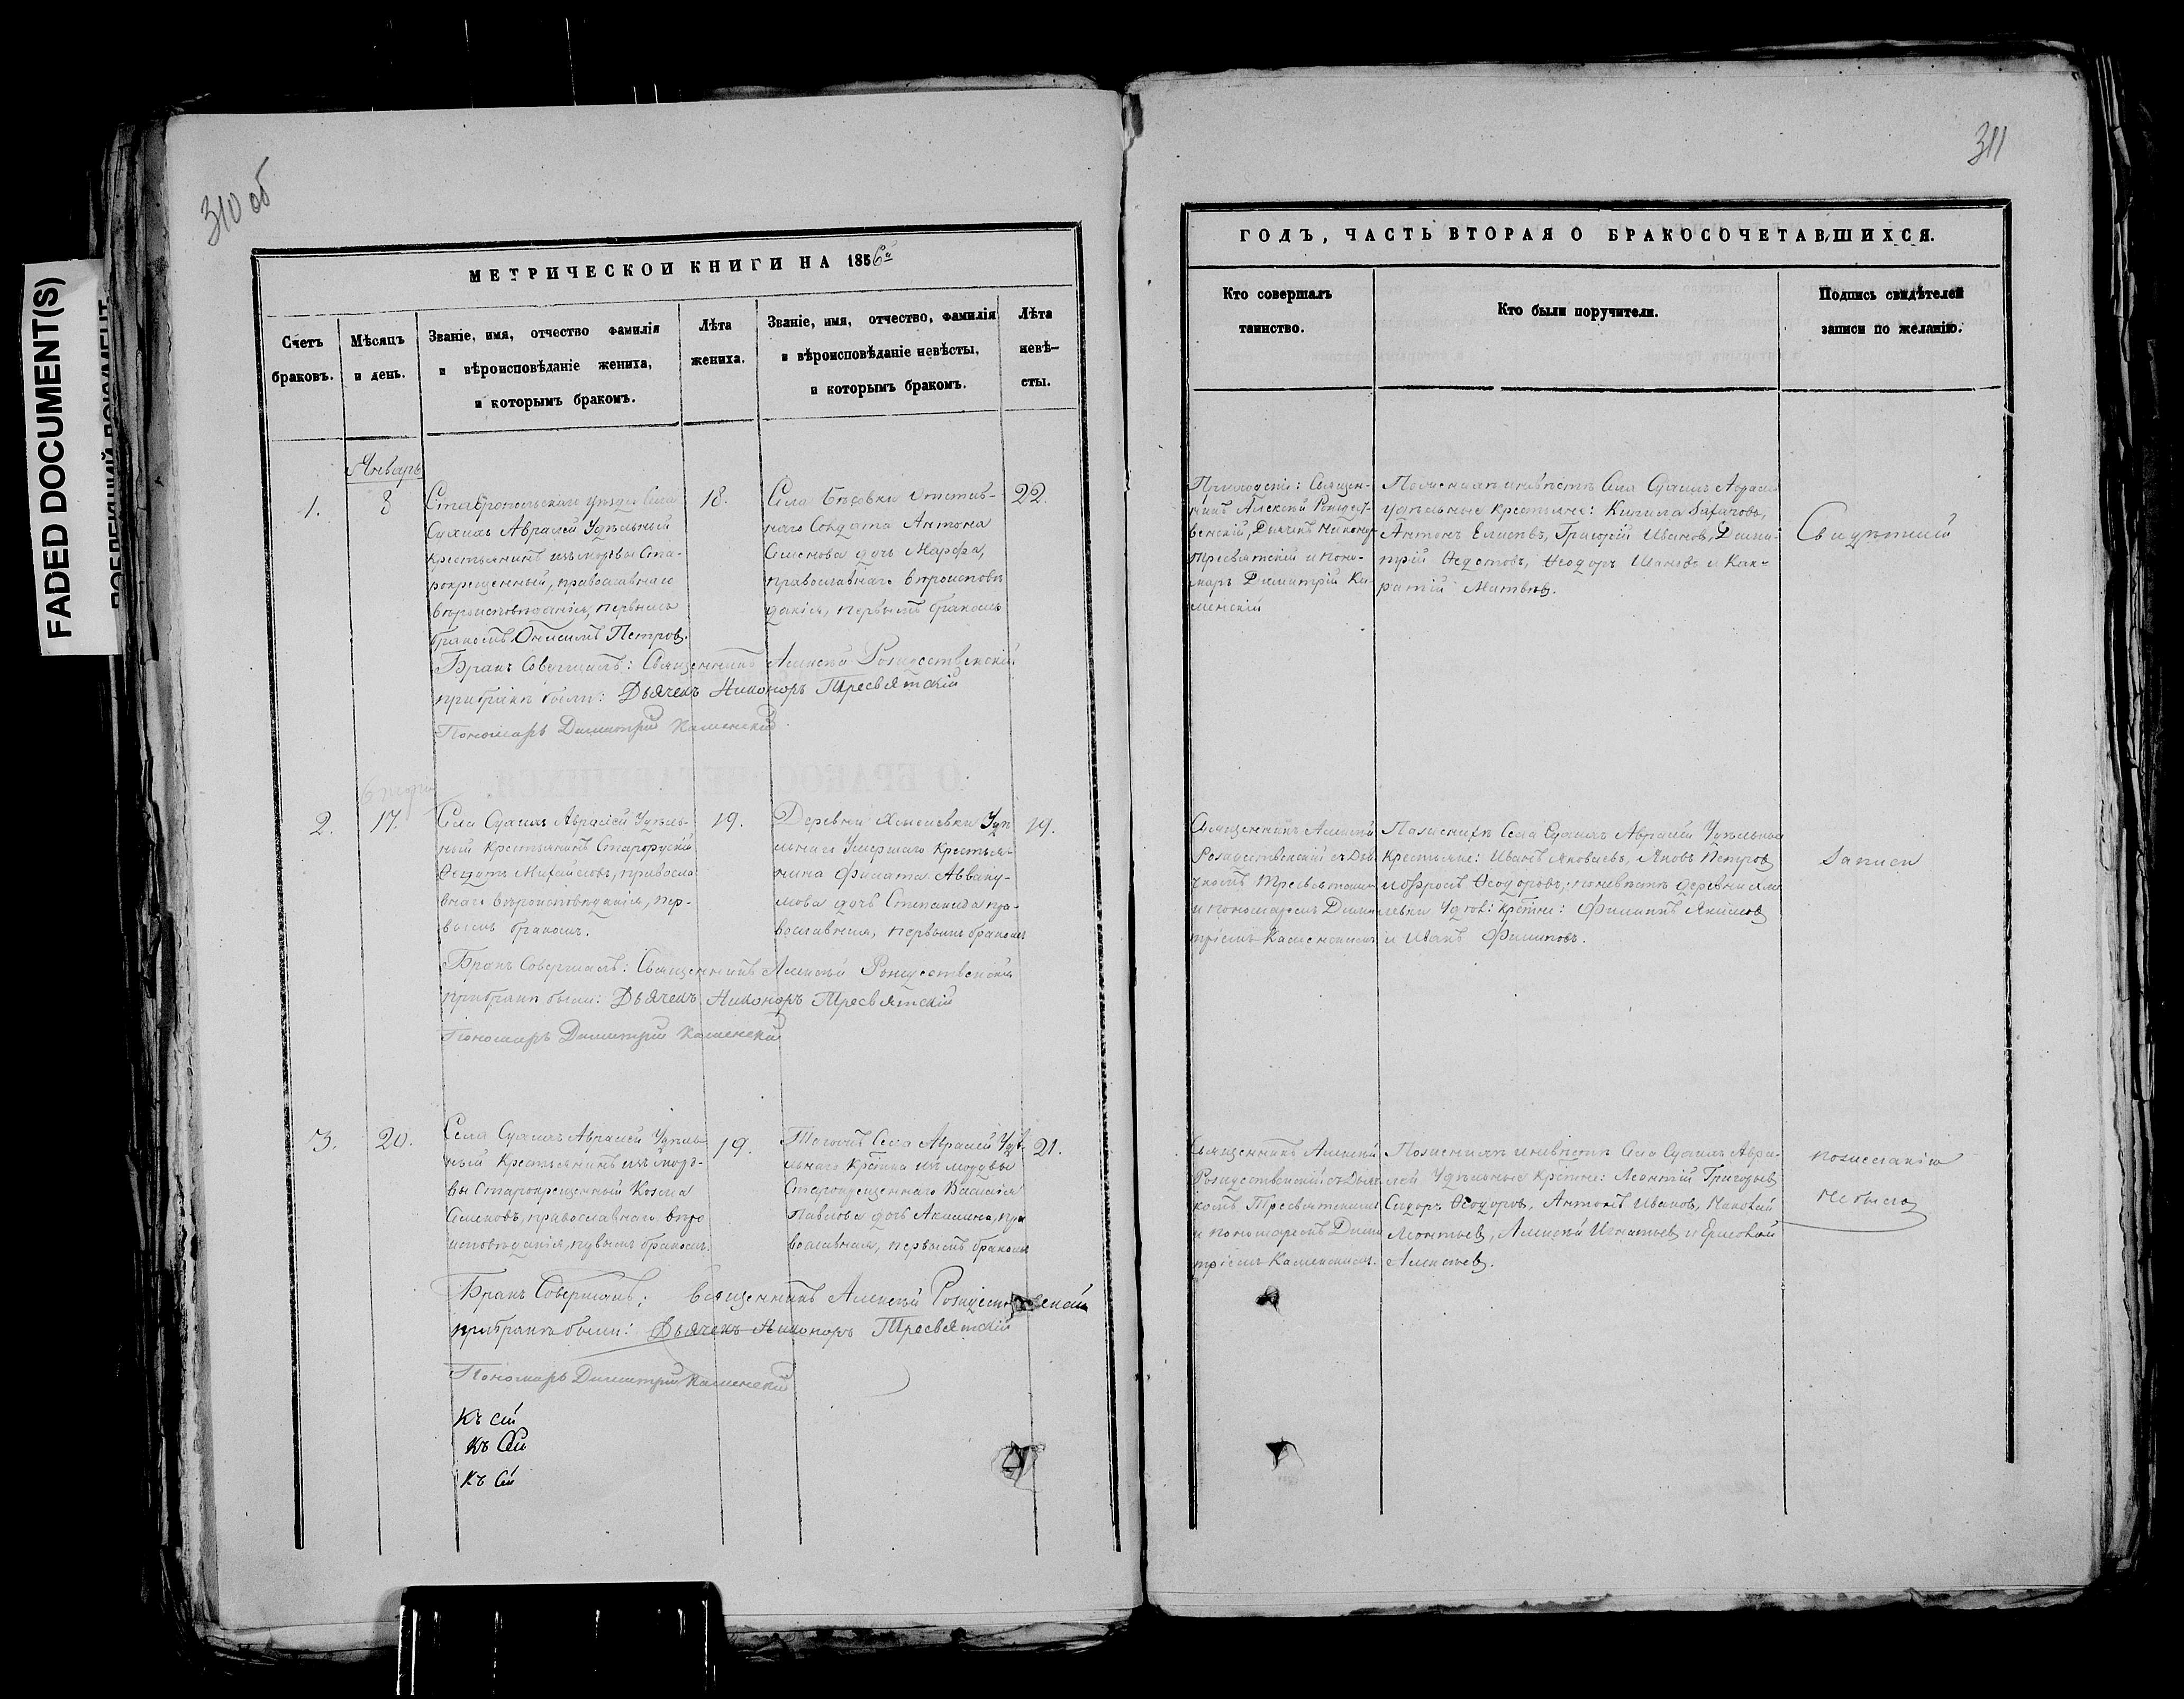 310 об
311
FADED DOCUMENT(S)
МЕТРИЧЕСКОЙ КНИГИ НА 1856й
Счетъ браковъ.
Мѣсяцъ и день.
Званіе, имя, отчество фамилія
и вѣроисповѣданіе жениха,
и которымъ бракомъ.
Лѣта жениха.
Званіе, имя, отчество, фамилія
и вѣроисповѣданіе невѣсты,
и которымъ бракомъ.
Лѣта
невѣ-
сты.
Январь
1.
8
Ставропольскаго уѣзда Села
Сухихъ Авралей Удѣльный
крестьянинъ изъ мордвы Ста-
рокрещенный, православнаго
вѣроисповѣданія, первымъ
бракомъ Онисимъ Петровъ.
18.
Села Бѣсовки отстав-
наго Солдата Антона
Семенова дочь Марфа,
православнаго вѣроисповѣ
данія, первымъ бракомъ
22.
Бракъ Совершалъ: Священникъ Алексѣй Рождественскій
при бракѣ были: Дьячекъ Никоноръ Тресвятскій
Пономарь Димитрій Каменскій
2.
17.
Села Сухихъ Авралей Удѣль-
ный Крестьянинъ Старорускій
Ѳедотъ Михайловъ, правосла
внаго вѣроисповѣданія, пер-
вымъ бракомъ.
19.
Деревни Удѣ
льнаго Умершаго Крестья-
нина Филата Авваку-
мова дочь Степанида пра-
вославная, первымъ бракомъ
19.
Бракъ Совершалъ: Священникъ Алексѣй Рождественскій
при бракѣ были: Дьячекъ Никоноръ Тресвятскій
Пономарь Димитрій Каменскій
3.
20.
Села Сухихъ Авралей Удѣль
ный Крестьянинъ изъ Морд-
вы Старокрещенный Козма
Семеновъ, православнаго вѣро
исповѣданія, первымъ бракомъ.
19.
Тогожъ Села Авралей Удѣ
льнаго Крестьянина изъ мордвы
Старокрещеннаго Василія
Павлова дочь Акилина, пра
вославная, первымъ бракомъ
21.
Бракъ Совершалъ: Священникъ Алексѣй Рождественскій
при бракѣ были: Дьячекъ Никоноръ Тресвятскій
Пономарь Димитрій Каменскій
Къ сей
Къ Сей
Къ сей
ГОДЪ, ЧАСТЬ ВТОРАЯ О БРАКОСОЧЕТАВШИХСЯ.
Кто совершалъ
таинство.
Кто были поручители.
Подпись свидѣтелей
записи по желанію.
Приходскій: Священ-
никъ Алексѣй Рождест-
венскій, Дьячекъ Никоноръ
Тресвятскій и поно-
марь Димитрій Ка-
менскій
По женихѣ и невѣстѣ Села Сухихъ Аврали
удѣльные крестьяне: Кирила Захаровъ,
Антонъ Елисѣевъ, Григорій Ивановъ, Дими-
трій Ѳедотовъ, Ѳеодоръ Ивановъ и Кон-
ратій Матвѣевъ.
Свидѣтелей
Священникъ Алексѣй
Рождественскій съ Дья
чкомъ Тресвятскимъ
и пономаремъ Дими
тріемъ Каменскимъ
По женихѣ Села Сухихъ Авралей Удѣльные
Крестьяне: Иванъ Яковлевъ, Яковъ Петровъ
Ѳеодоровъ, по невѣстѣ деревни
Филиппъ Якимовъ
и Иванъ Филиповъ.
Записи
Священникъ Алексѣй
Рождественскій съ Дьяч
комъ Тресвятскимъ
и пономаремъ Дими
тріемъ Каменскимъ.
По женихѣ и невѣстѣ Села Сухихъ Авра-
лей Удѣльные Крестьяне: Леонтій Григорьевъ
Сидоръ Ѳеодоровъ, Антонъ Ивановъ, Николай
Леонтьевъ, Алексѣй Игнатьевъ и Ермолай
Алексѣевъ.
по желанію
не было